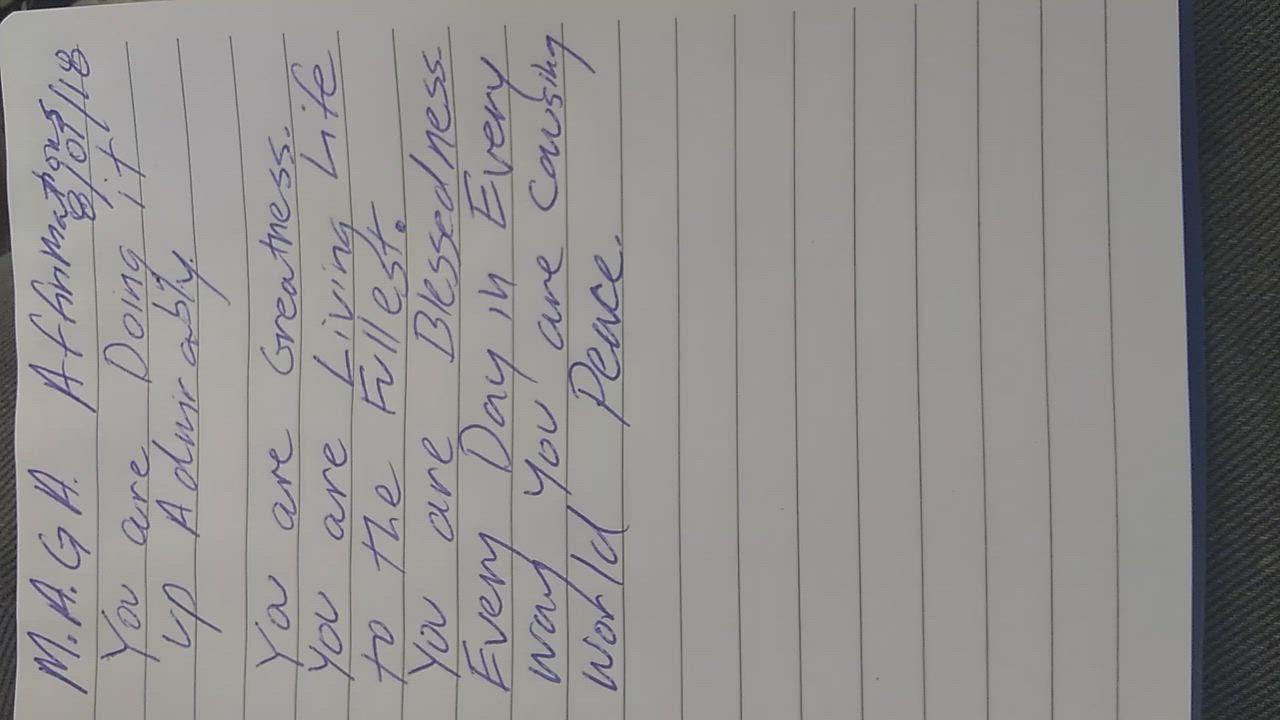 M.A.G A. Affirmations
8/01/18
You are Doing it
up Admirably.
You are Greatness.
You are Living Life
to the Fullest.
You are Blessedness.
Every Day in Every
way you are causing
world Peace.